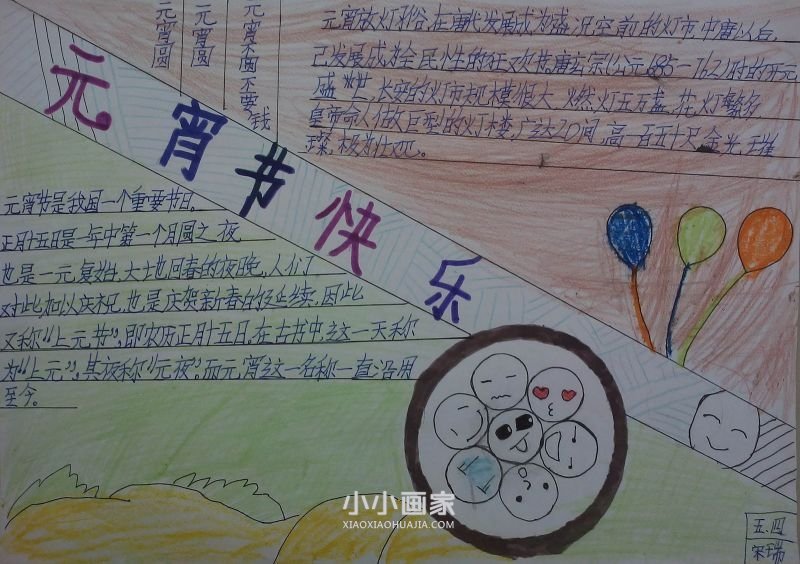 元宵圆
元宵圆
元宵不圆不要钱
元宵节快乐
元宵放灯习俗,在唐代发展成为盛况空前的灯市,中唐以后,
已发展成为全民性的狂欢
长安的灯市规模很大,燃灯五万盏,花灯繁多
皇帝命人做巨型的灯楼,广达20间,高一百五十尺,金光璀
璨,极为壮观。
元宵节是我国一个重要节日。
正月十五日是一年中第一个月圆之夜
也是一元复始,大地回春的夜晚,人们
对此加以庆祝,也是庆贺新春的延续,因此
又称“上元节”,即农历正月十五日,在古书中,这一天称
为“上元”,其夜称“元夜”,而元宵这一名称一直沿用
至今。
小小画家
XIAOXIAOHUAJIA.COM
五、四
宋瑞